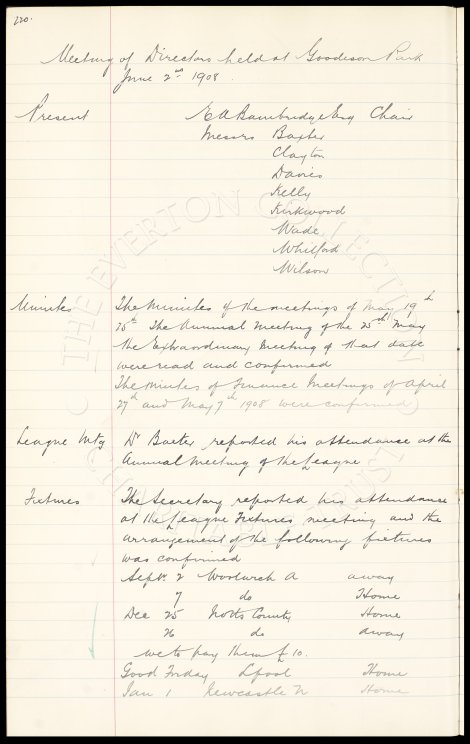 220.
Meeting of Directors held at Goodison Park
June 2nd 1908.
Present E A Bainbridge Esq Chair
Messrs Baxter
Clayton
Davies
Kelly
Kirkwood
Wade
Whitford
Wilson
Minutes The Minutes of the meetings of May 19th
25th The Annual Meeting of the 25th May
the Extraordinary Meeting of that date
were read and confirmed
The Minutes of Finance Meetings of April
27th and May 7th 1908 were confirmed
League Mtg Dr Baxter reported his attendance at the
Annual Meeting of the League
Fixtures The Secretary reported his attendance
at the League Fixtures meeting and the
arrangement of the following fixtures
was confirmed
Sept. 2 Woolwich A away
7 do Home
Dec 25 Notts County Home
26 do away
we to pay them £10.
Good Friday Lpool Home
Jan 1 Newcastle U Home
THE EVERTON COLLECTION
CHARITABLE TRUST